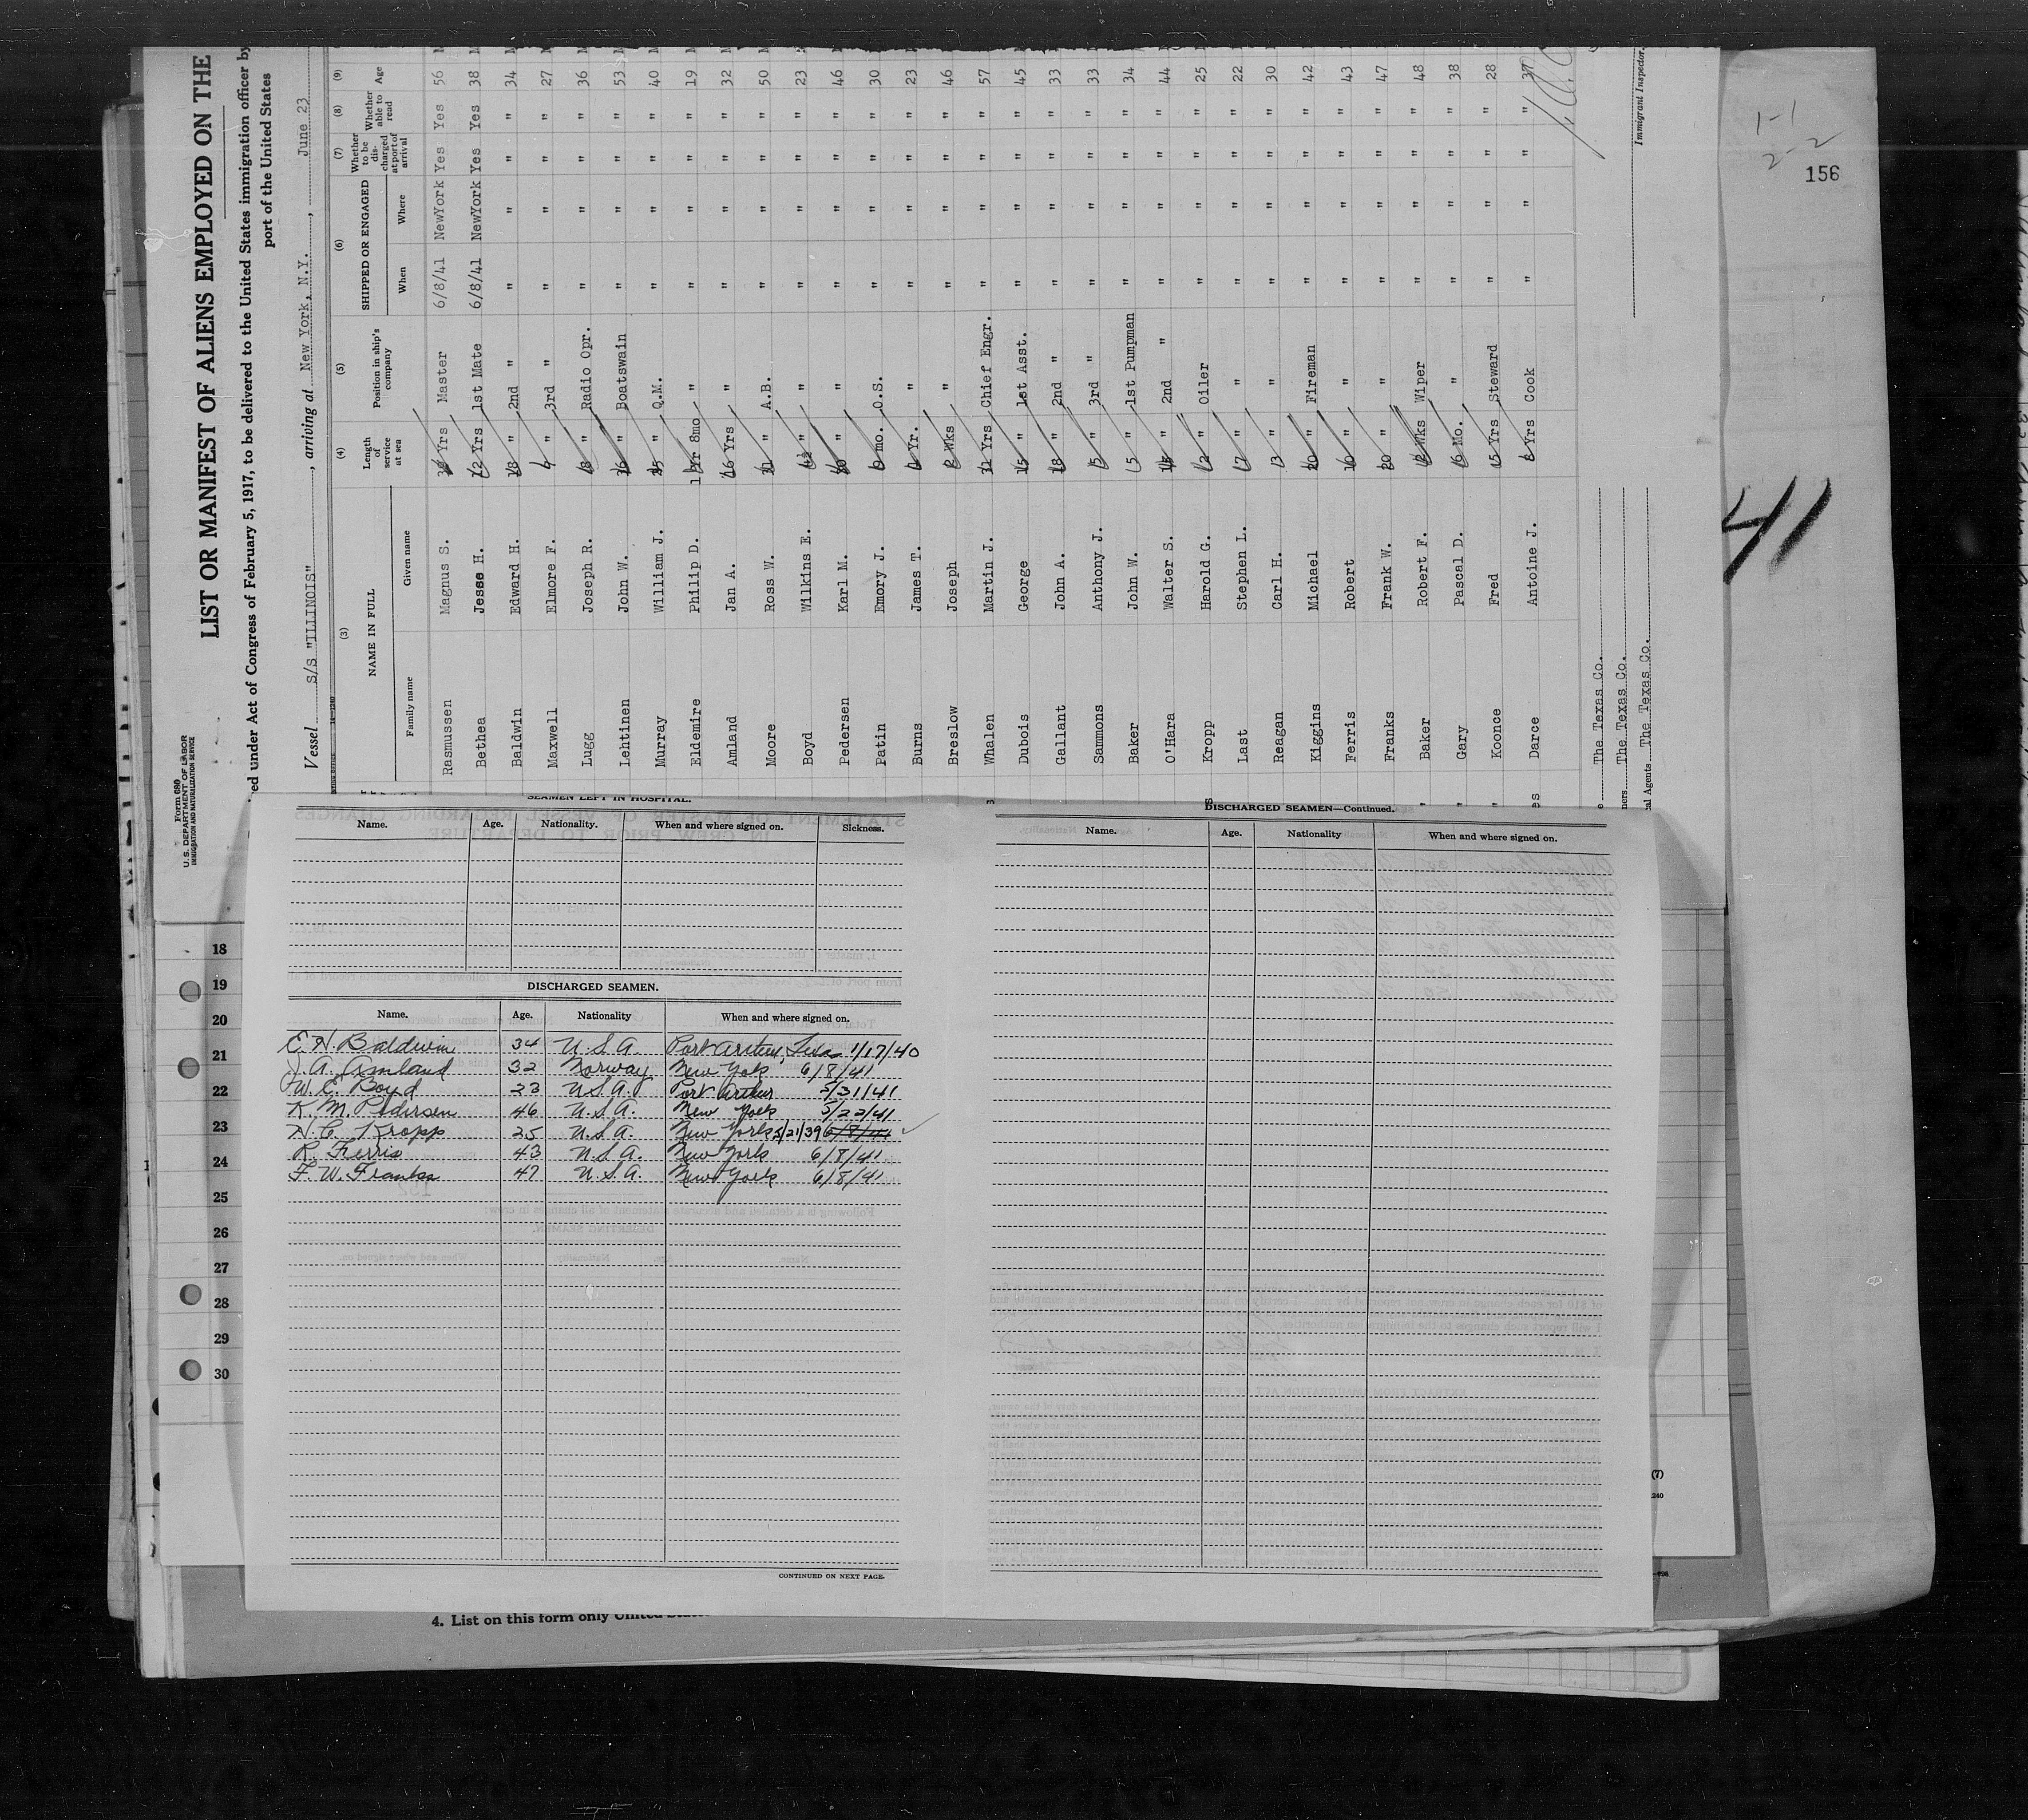 Form 680
U. S. DEPARTMENT OF LABOR
IMMIGRATION AND NATURALIZATION SERVICE
LIST OR MANIFEST OF ALIENS EMPLOYED ON THE
ed under Act of Congress of February 5, 1917, to be delivered to the United States immigration officer by
port of the United States
Vessel S/S "ILLINOIS", arriving at New York, N.Y., June 23
(3) (4) (5) (6) (7) (8) (9)
NAME IN FULL Length of service at sea Position in ship's company SHIPPED OR ENGAGED Whether to be discharged at port of arrival Whether able to read Age
Family name Given name When Where
Rasmussen Magnus S. Yrs Master 6/8/41 NewYork Yes Yes 56
Bethea Jesse H. 12 Yrs 1st Mate 6/8/41 NewYork Yes Yes 38
Baldwin Edward H. 18 " 2nd " " " " " 34
Maxwell Elmore F. " 3rd " " " " " 27
Lugg Joseph R. 18 " Radio Opr. " " " " 36
Lehtinen John W. 16 " Boatswain " " " " 53
Murray William J. " Q.M. " " " " 40
Eldemire Philip D. 1Yr 8mo " " " " " 19
Amland Jan A. 16 Yrs " " " " " 32
Moore Ross W. " A.B. " " " " 50
Boyd Wilkins E. " " " " " " 23
Pedersen Karl M. " " " " " " 46
Patin Emory J. mo. O.S. " " " " 30
Burns James T. Yr. " " " " " 23
Breslow Joseph Wks " " " " " 46
Whalen Martin J. Yrs Chief Engr. " " " " 57
Dubois George 15 " 1st Asst. " " " " 45
Gallant John A. 18 " 2nd " " " " " 33
Sammons Anthony J. 15 " 3rd " " " " " 33
Baker John W. 15 " 1st Pumpman " " " " 34
O'Hara Walter S. " 2nd " " " " " 44
Kropp Harold G. " Oiler " " " " 25
Last Stephen L. 17 " " " " " " 22
Reagan Carl H. 13 " " " " " " 30
Kiggins Michael 20 " Fireman " " " " 42
Ferris Robert 16 " " " " " " 43
Franks Frank W. 20 " " " " " " 47
Baker Robert F. Wks Wiper " " " " 48
Gary Pascal D. Mo. " " " " " 38
Koonce Fred 15 Yrs Steward " " " " 28
Darce Antoine J. Yrs Cook " " " " 37
The Texas Co.
ners The Texas Co.
al Agents The Texas Co.
Immigrant Inspector.
1-1
2-2
156
41
SEAMEN LEFT IN HOSPITAL.
Name. Age. Nationality. When and where signed on. Sickness.
DISCHARGED SEAMEN.
Name. Age. Nationality When and where signed on.
E. H. Baldwin 34 U.S.A. Port Arthur, Texas 1/17/40
J. A. Amland 32 Norway New York 6/8/41
W. E. Boyd 23 U.S.A. Port Arthur 5/31/41
K. M. Pedersen 46 U.S.A. New York 5/22/41
H. C. Kropp 25 U.S.A. New York 5/21/39 6/8/41
R. Ferris 43 U.S.A. New York 6/8/41
F. W. Franks 47 U.S.A. New York 6/8/41
CONTINUED ON NEXT PAGE.
DISCHARGED SEAMEN—Continued.
Name. Age. Nationality When and where signed on.
18
19
20
21
22
23
24
25
26
27
28
29
30
(7)
240
4. List on this form only United